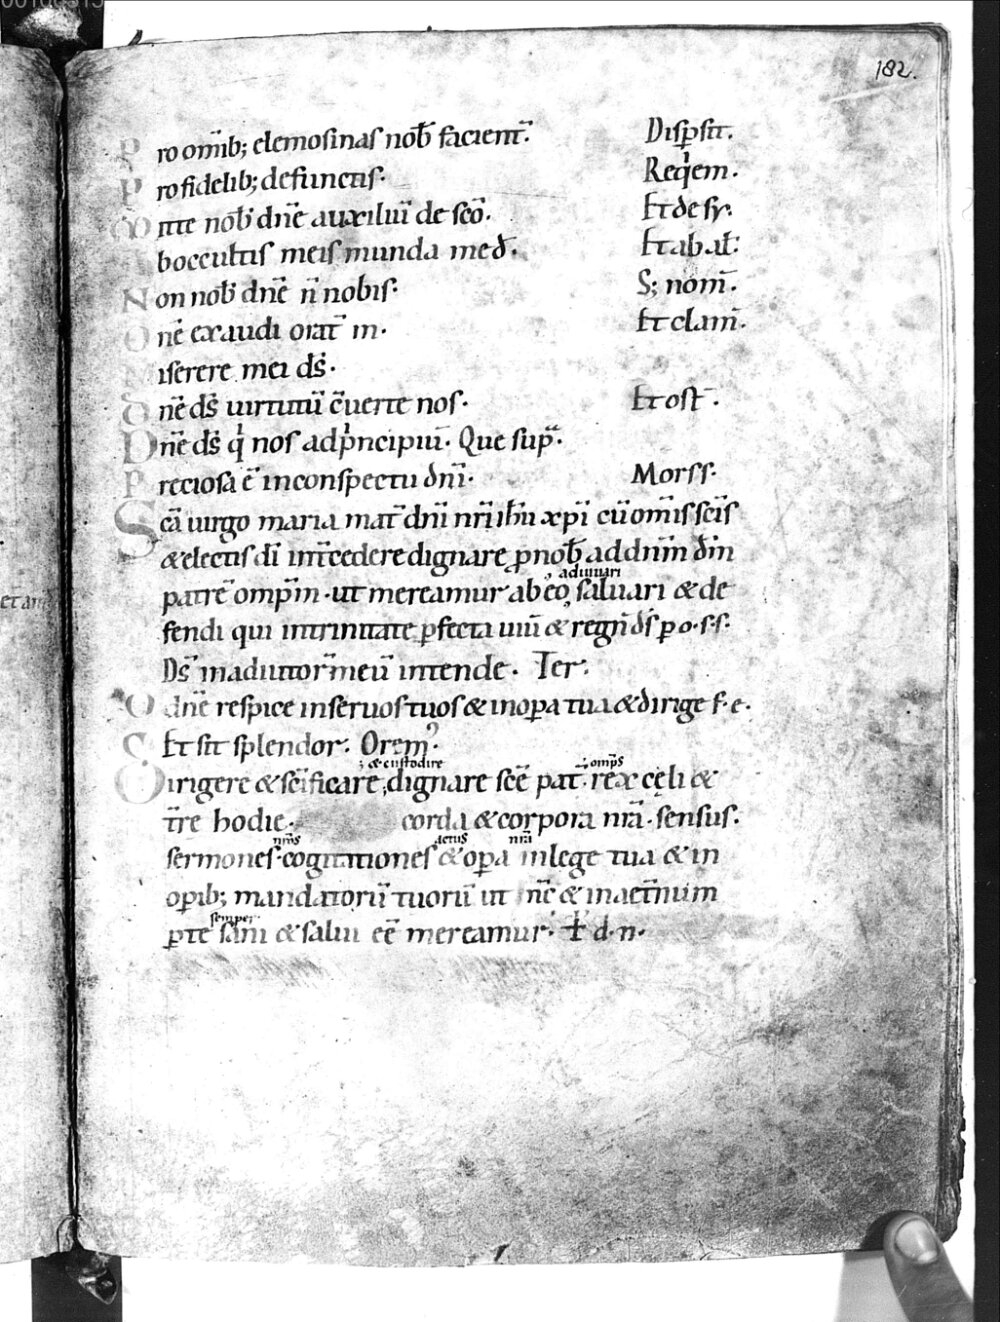 182.
Pro om̄ib; elemosinas nob̄ facient̄. Disp̱sit.
Pro fidelib; defunctis. Req̇em.
Mitte nob̄ dn̄e auxiliū de sc̄o. Et de sy.
Ab occultis meis munda me d̄. Et ab al̄.
Non nob̄ dn̄e n̄ nobis. S; nom̄.
Dn̄e exaudi orat̄ m. Et clam̄.
Miserere mei ds̄.
Dn̄e ds̄ uirtutū c̄uerte nos. Et ost̄.
Dn̄e ds̄ q̇ nos ad ṗncipiū. Que sup̄.
Preciosa ē in conspectu dn̄i. Mors s.
Sc̄a uirgo maria mat̄ dn̄i nr̄i ih̄u xp̄i cū om̄is sc̄is
& electis dī int̄cedere dignare p̱ nob̄ ad dn̄m dm̄
adiuuari
patrē omp̄m. ut mereamur ab eo, saluari & de
fendi qui in trinitate p̱fecta uiū & regn̄ ds̄ p̱ o.s.s.
Ds̄ in adiutor̄ meū intende. Ter.
O dn̄e respice in seruos tuos & in op̱a tua & dirige f.e.
Et sit splendor. Orem̄.
; & custodire omp̄s
Dirigere & sc̄ificare; dignare sc̄e pat̄. rex cęli &
t̄re hodie. corda & corpora nr̄a. sensus.
nr̄os actus nr̄a
sermones. cogitationes & op̱a in lege tua & in
op̱ib; mandatorū tuorū ut nc̄ & in aet̄num
semper
p̱ te sani & salui eē mereamur. ⁊ d.n.
et am